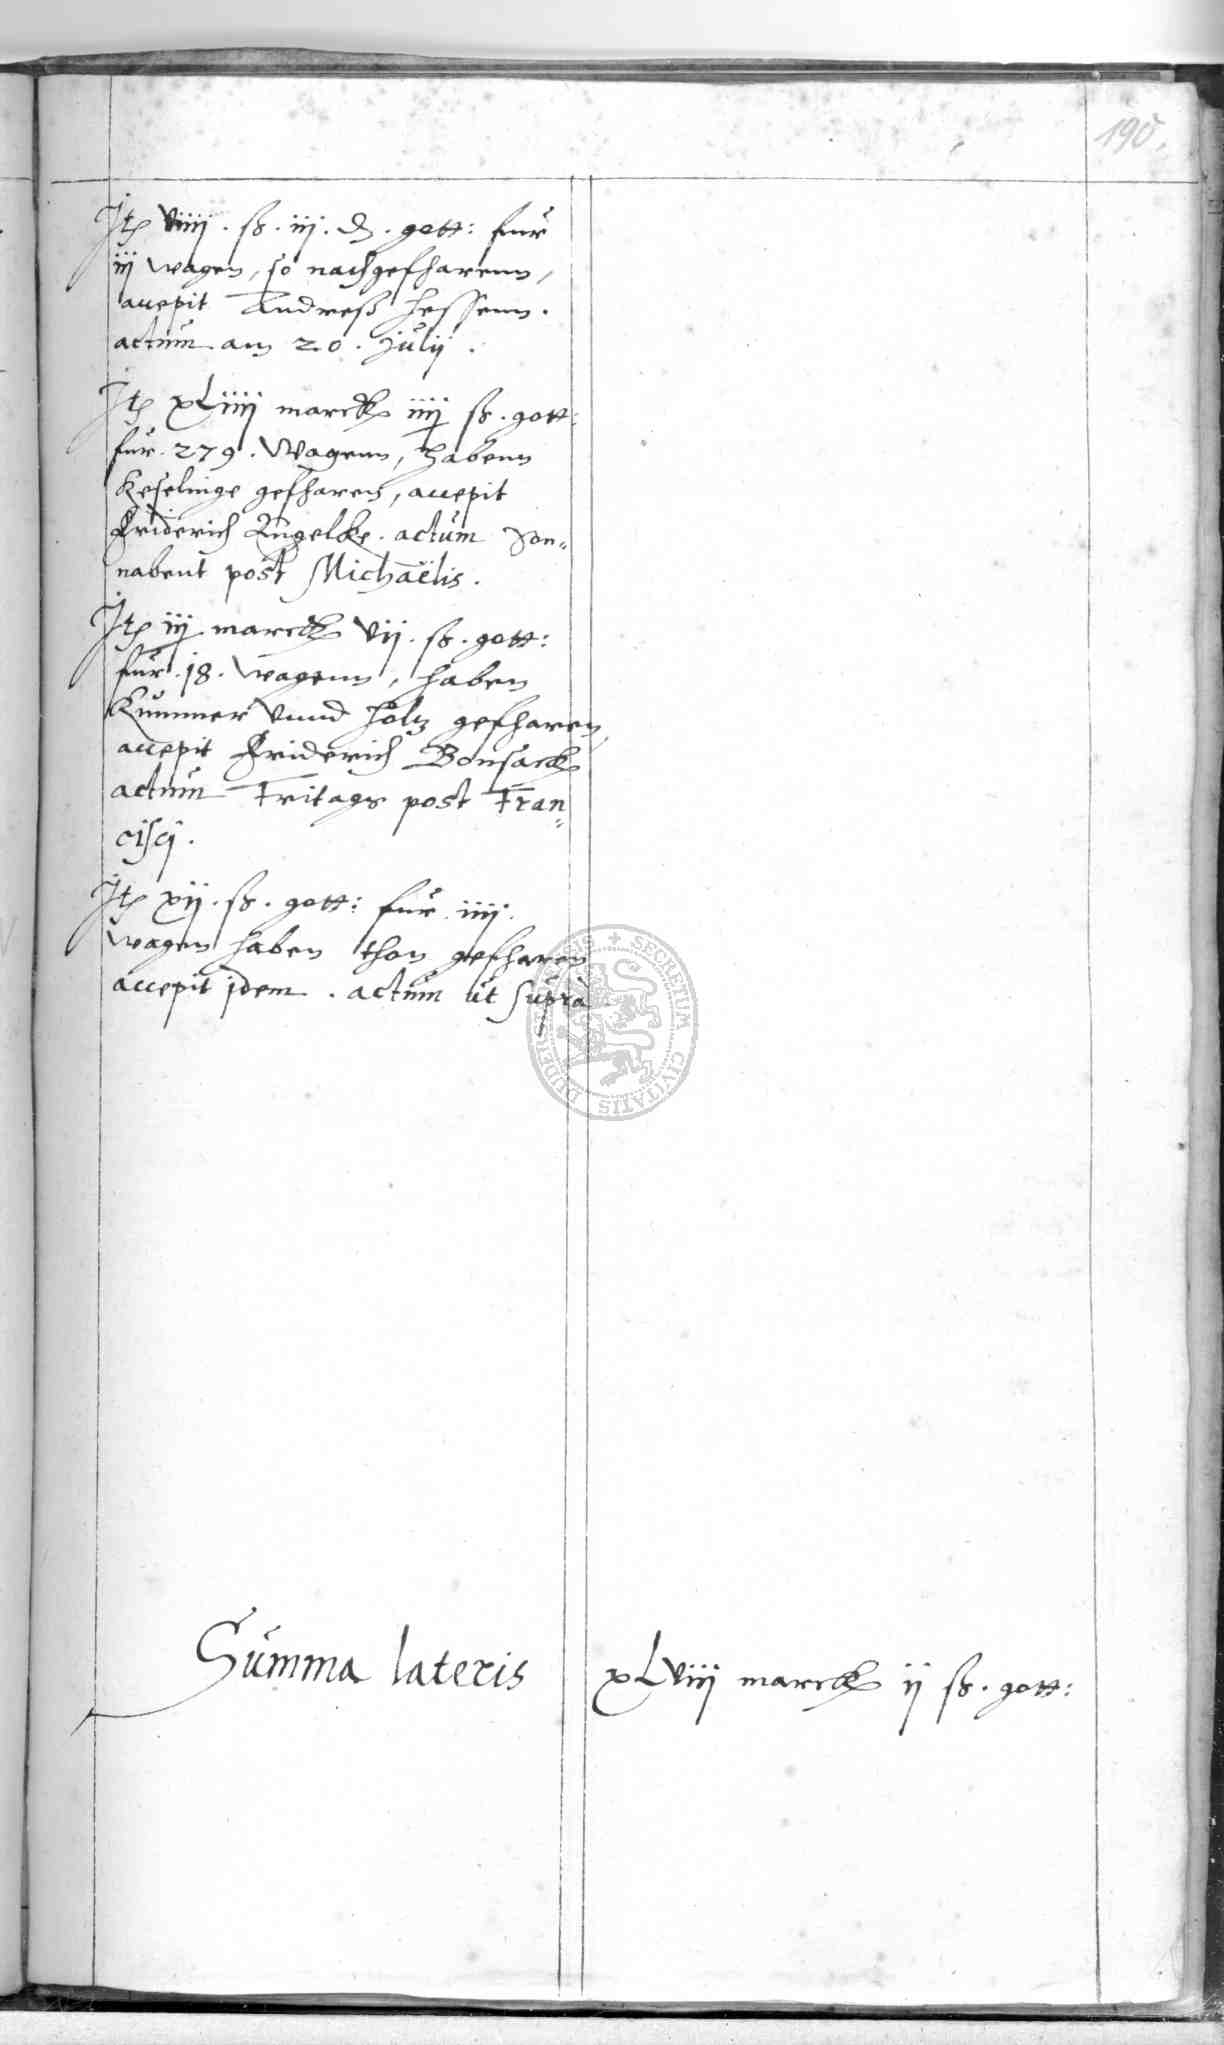 190.
Jtē viiij. ß. iij. ₰. gott: fuͤr
iij wagen, so nachgefharenn,
accepit Andreß Hessenn.
actum am 20. Julij.
Jtē xLiiij marck iiij ß. gott:
fuͤr. 279. Wagenn, Habenn
Keselinge gefharen, accepit
Friderich Engelke. actum Son=
nabent post Michaëlis.
Jtē iij marck vij. ß. gott:
fuͤr. 18. wagenn, haben
Kummer vnnd Holtz gefharen,
accepit Friderich Bonsack
actum Fritags post Fran=
cisci.
Jtē xij. ß. gott: fuͤr iiij.
wagen haben thon gefharen
accepit jdem. actum ut supra
SECRETUM CIVITATIS DUDERSTADENSIS
Summa lateris xLviij marck ij ß. gott: